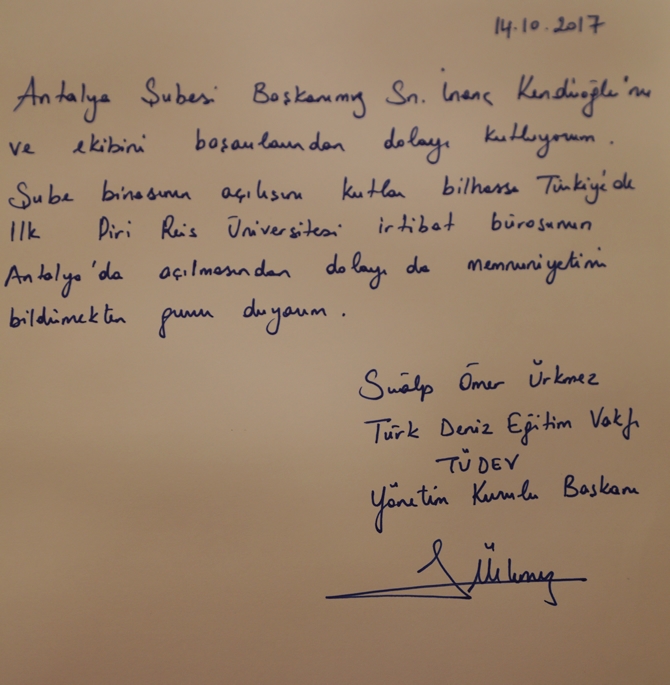 14.10.2017
Antalya Şubesi Başkanımız Sn. İnanç Kendiroğlu'nu
ve ekibini başarılarından dolayı kutluyorum.
Şube binasının açılışını kutlar bilhassa Türkiye'de
İlk Piri Reis Üniversitesi irtibat bürosunun
Antalya'da açılmasından dolayı da memnuniyetimi
bildirmekten gurur duyarım.
Sualp Ömer Ürkmez
Türk Deniz Eğitim Vakfı
TÜDEV
Yönetim Kurulu Başkanı